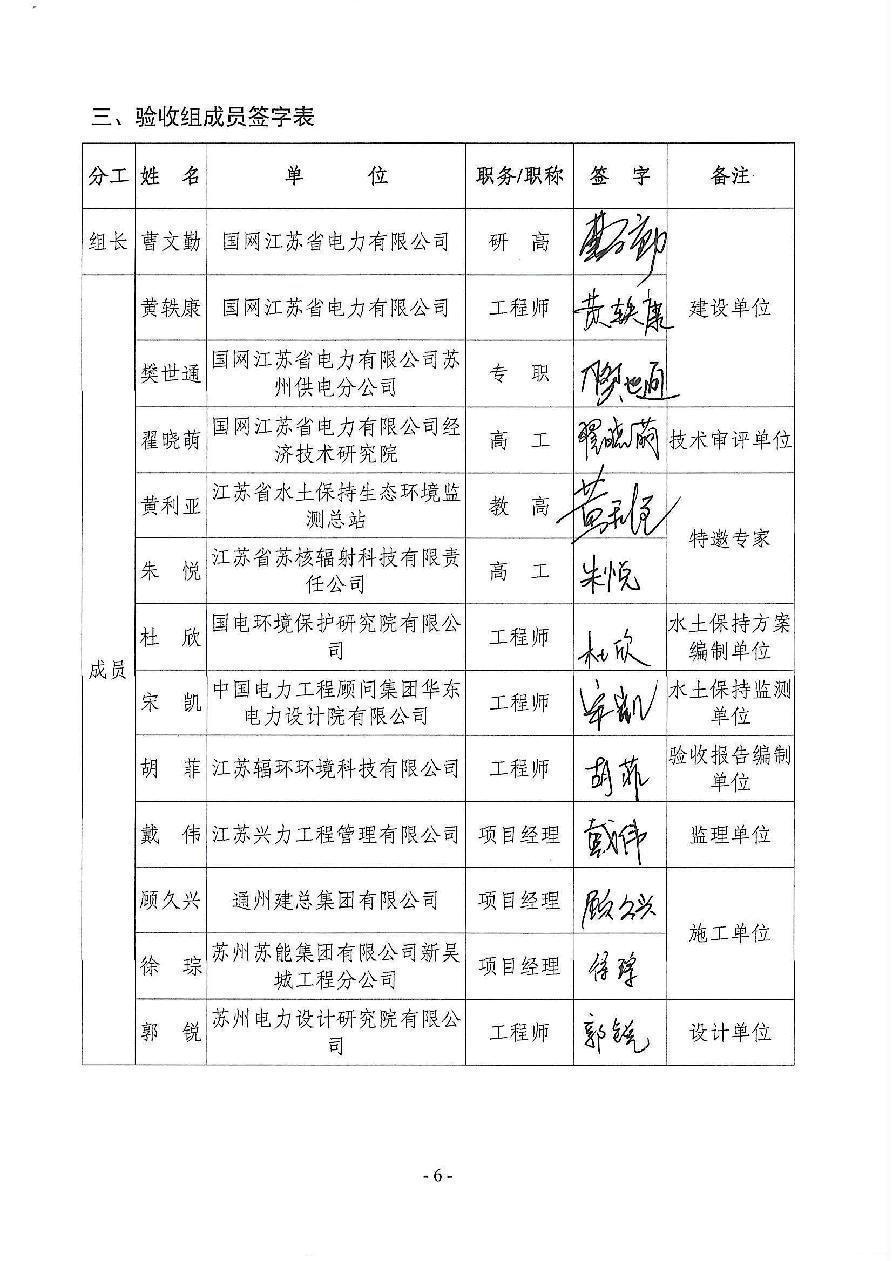 三、验收组成员签字表
分工 姓 名 单 位 职务/职称 签 字 备注
组长 曹文勤 国网江苏省电力有限公司 研 高 曹文勤
黄轶康 国网江苏省电力有限公司 工程师 黄轶康 建设单位
樊世通 国网江苏省电力有限公司苏
州供电分公司 专 职 樊世通
翟晓萌 国网江苏省电力有限公司经
济技术研究院 高 工 翟晓萌 技术审评单位
黄利亚 江苏省水土保持生态环境监
测总站 教 高
特邀专家
朱 悦 江苏省苏核辐射科技有限责
任公司 高 工 朱悦
成员
杜 欣 国电环境保护研究院有限公
司 工程师 杜欣 水土保持方案
编制单位
宋 凯 中国电力工程顾问集团华东
电力设计院有限公司 工程师 宋凯 水土保持监测
单位
胡 菲 江苏辐环环境科技有限公司 工程师 胡菲 验收报告编制
单位
戴 伟 江苏兴力工程管理有限公司 项目经理 戴伟 监理单位
顾久兴 通州建总集团有限公司 项目经理 顾久兴
施工单位
徐 琮 苏州苏能集团有限公司新吴
城工程分公司 项目经理 徐琮
郭 锐 苏州电力设计研究院有限公
司 工程师 郭锐 设计单位
- 6 -